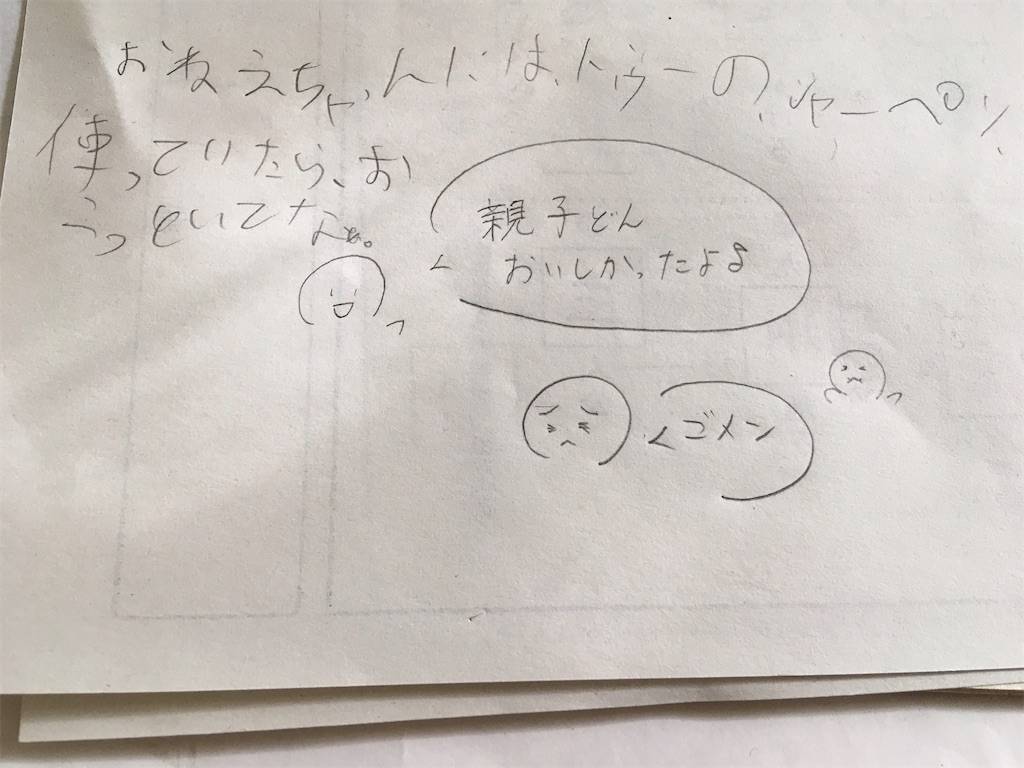 おねえちゃんには、トゥーの、シャーペン、
使っていたら、お
こっといてなぁ。
親子どん
おいしかったよ♪
ゴメン